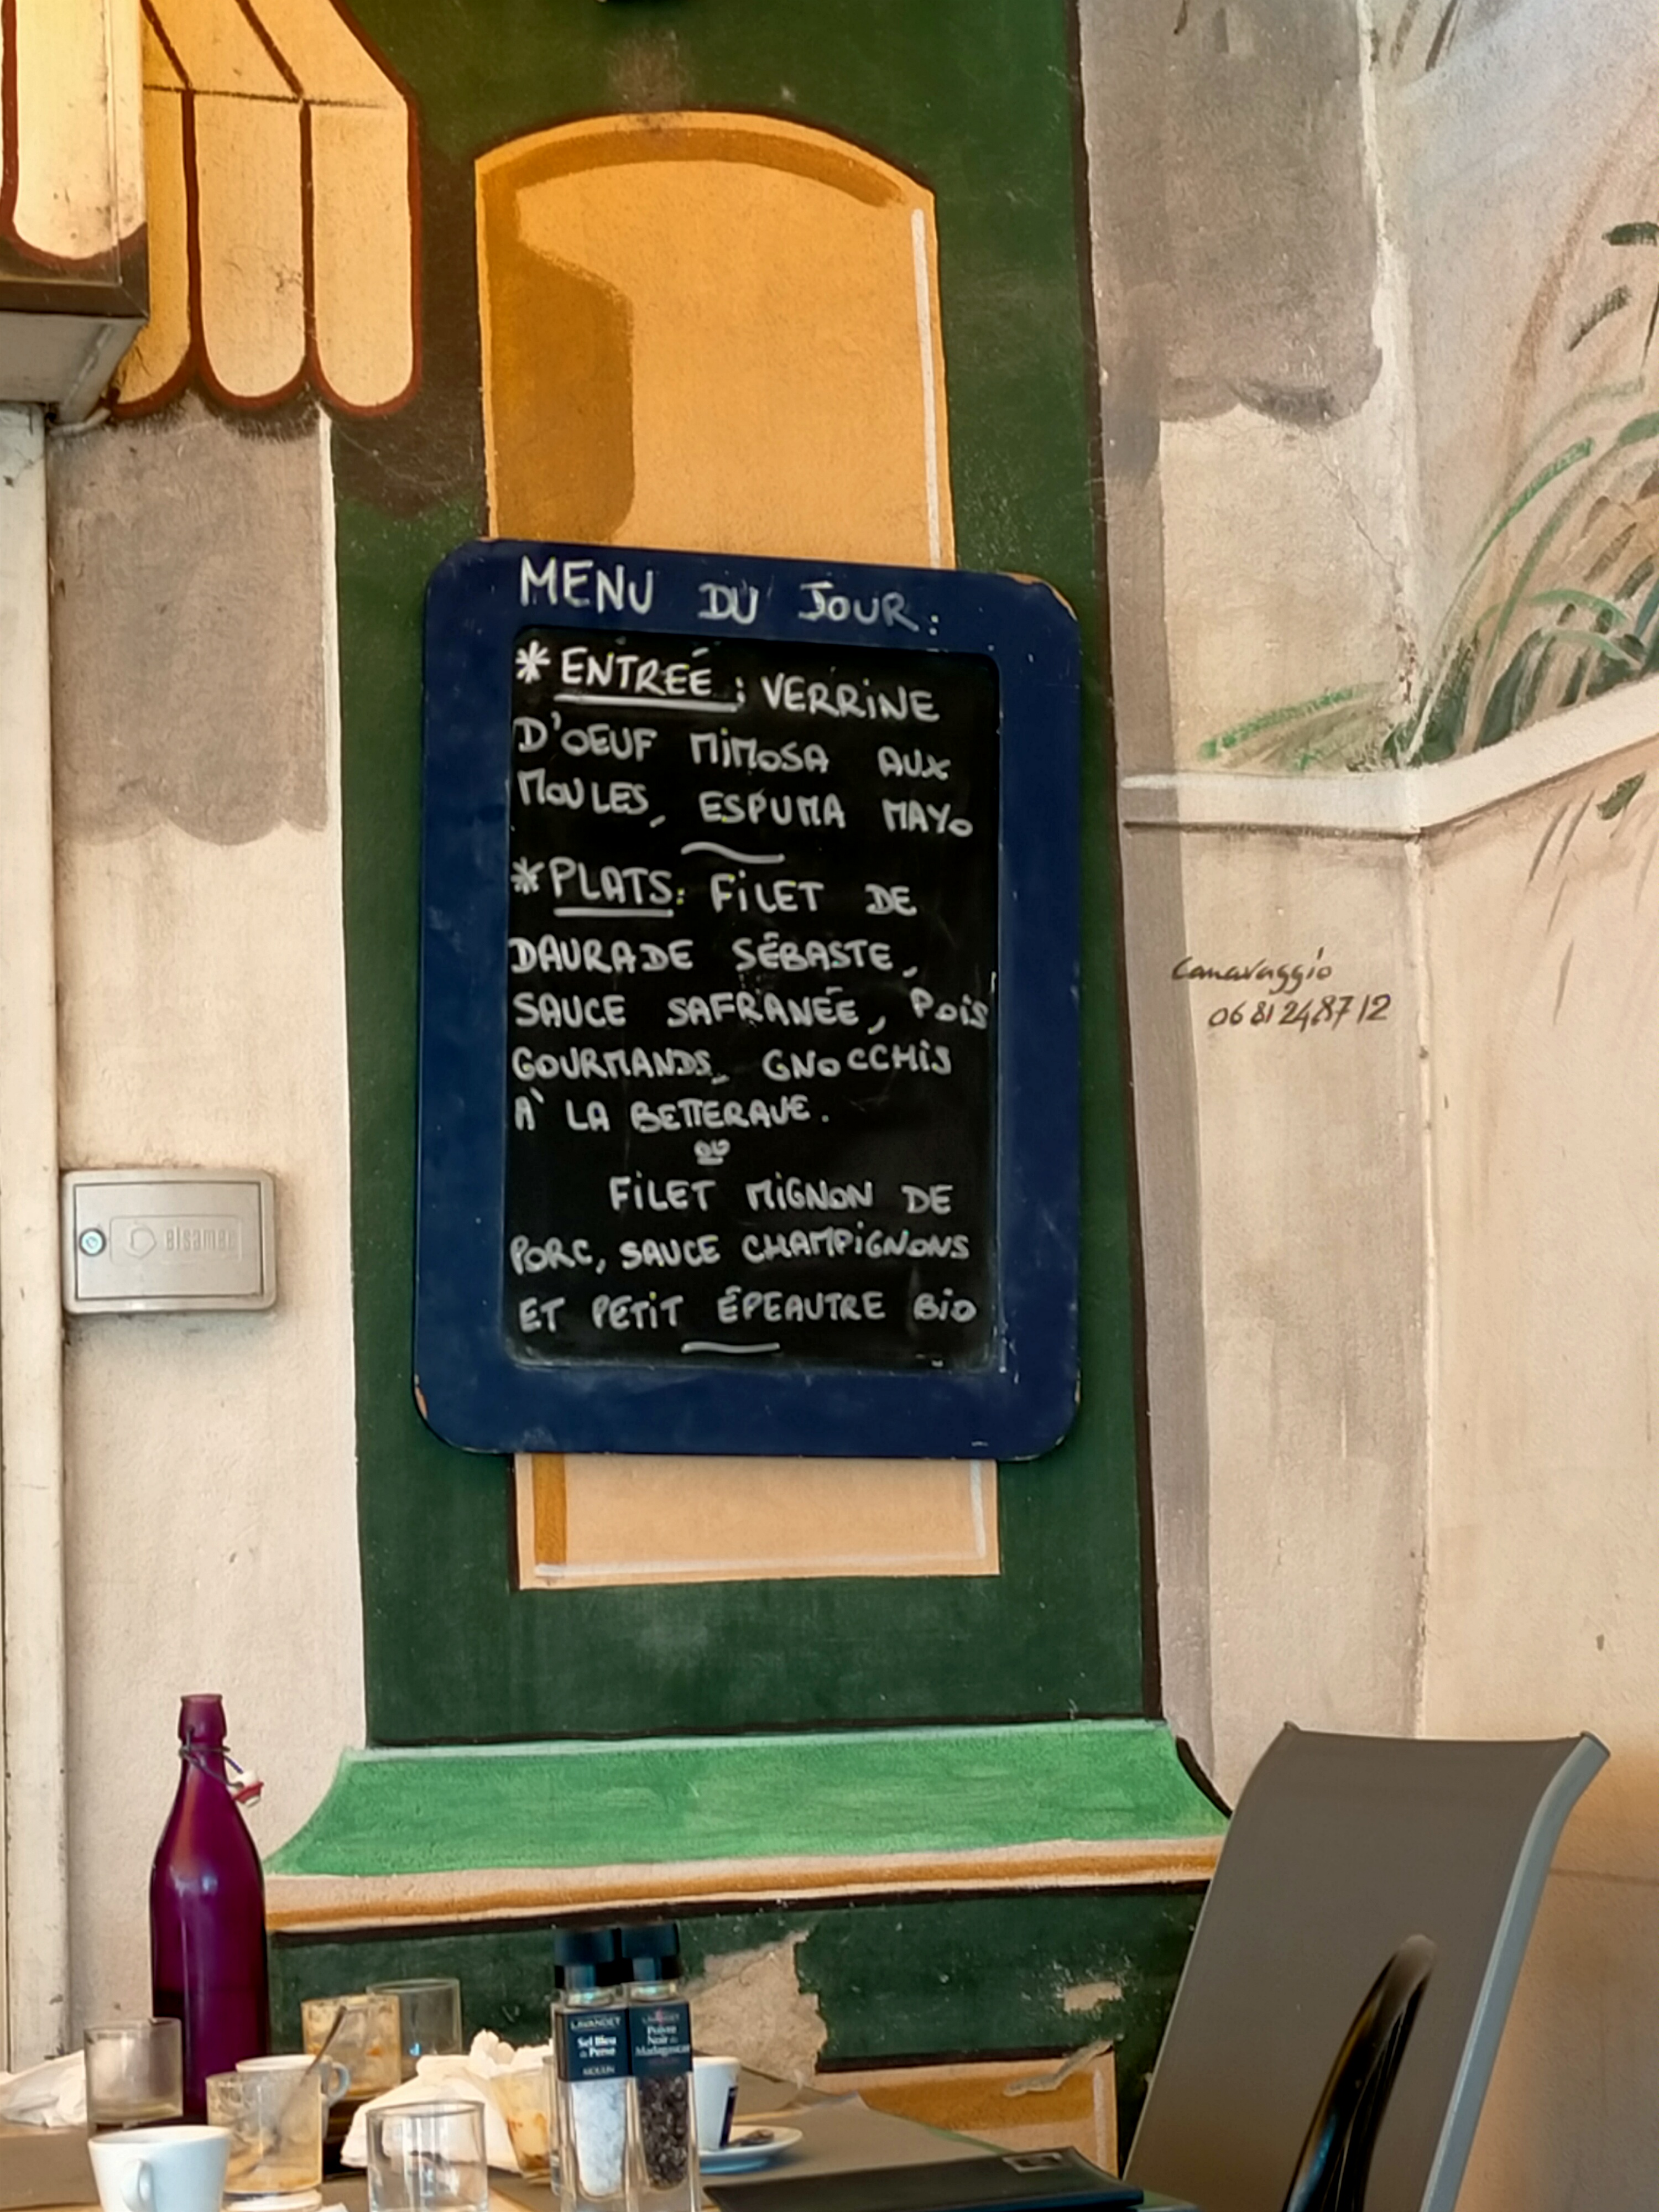 MENU DU JOUR:
* ENTREÉ : VERRINE
D'OEUF MIMOSA AUX
MOULES, ESPUMA MAYO
* PLATS: FILET DE
DAURADE SÉBASTE,
SAUCE SAFRANÉE, POIS
GOURMANDS, GNOCCHIS
À LA BETTERAVE.
OU
FILET MIGNON DE
PORC, SAUCE CHAMPIGNONS
ET PETIT ÉPEAUTRE BIO
Canavaggio
06 81 24 87 12
elsamec
LAVANDET
Sel Bleu
de Perse
MOULIN
LAVANDET
Poivre
Noir de
Madagascar
MOULIN